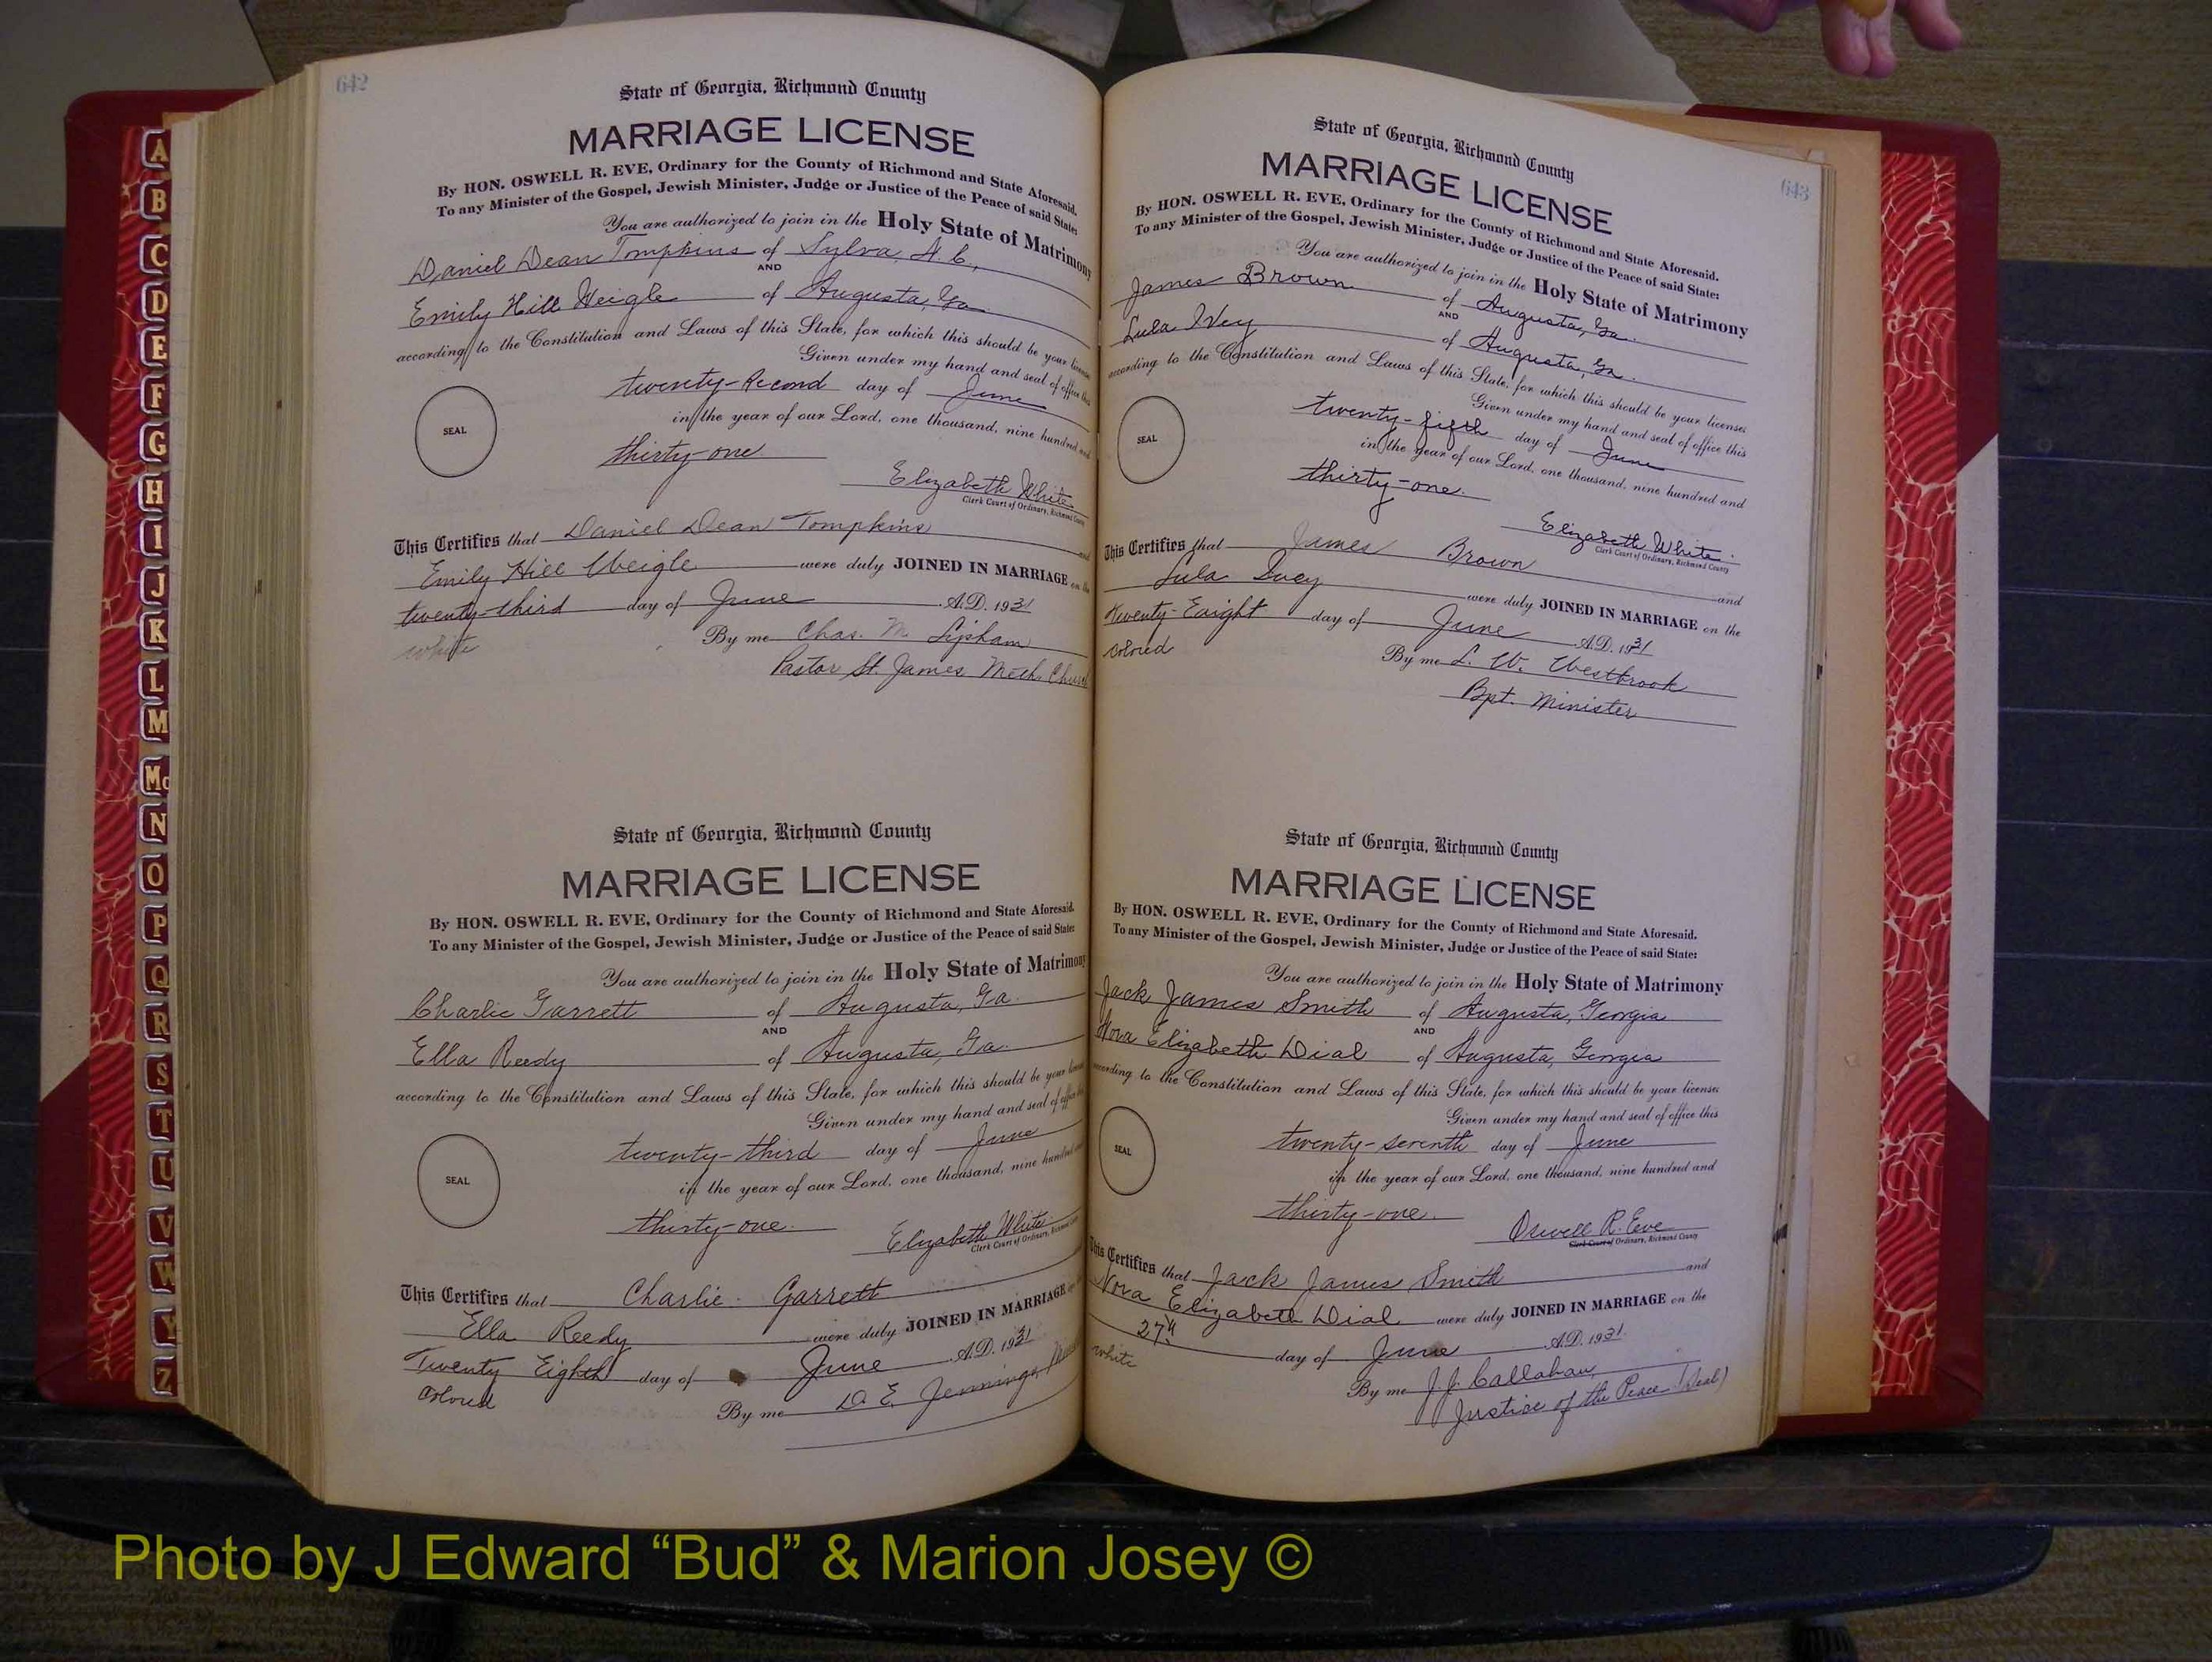 642
State of Georgia, Richmond County
MARRIAGE LICENSE
By HON. OSWELL R. EVE, Ordinary for the County of Richmond and State Aforesaid.
To any Minister of the Gospel, Jewish Minister, Judge or Justice of the Peace of said State:
You are authorized to join in the Holy State of Matrimony
Daniel Dean Tompkins of Sylva, N.C.,
AND
Emily Hill Weigle of Augusta, Ga
according to the Constitution and Laws of this State, for which this should be your license
Given under my hand and seal of office this
twenty-second day of June
in the year of our Lord, one thousand, nine hundred and
thirty-one
SEAL
Elizabeth White
Clerk Court of Ordinary, Richmond County
This Certifies that Daniel Dean Tompkins and
Emily Hill Weigle were duly JOINED IN MARRIAGE on the
twenty-third day of June A.D. 1931
white By me Chas. M. Lipham
Pastor St. James Meth. Church
State of Georgia, Richmond County
MARRIAGE LICENSE
By HON. OSWELL R. EVE, Ordinary for the County of Richmond and State Aforesaid.
To any Minister of the Gospel, Jewish Minister, Judge or Justice of the Peace of said State:
You are authorized to join in the Holy State of Matrimony
Charlie Garrett of Augusta, Ga.
AND
Ella Reedy of Augusta, Ga.
according to the Constitution and Laws of this State, for which this should be your license
Given under my hand and seal of office this
twenty-third day of June
in the year of our Lord, one thousand, nine hundred and
SEAL
thirty-one.
Elizabeth White
Clerk Court of Ordinary, Richmond County
This Certifies that Charlie Garrett
Ella Reedy were duly JOINED IN MARRIAGE
Twenty Eighth day of June A.D. 1931
Colored By me D. E. Jennings,
643
State of Georgia, Richmond County
MARRIAGE LICENSE
By HON. OSWELL R. EVE, Ordinary for the County of Richmond and State Aforesaid.
To any Minister of the Gospel, Jewish Minister, Judge or Justice of the Peace of said State:
You are authorized to join in the Holy State of Matrimony
James Brown of Augusta, Ga.
AND
Lula Ivey of Augusta, Ga.
according to the Constitution and Laws of this State, for which this should be your license:
Given under my hand and seal of office this
twenty-fifth day of June
in the year of our Lord, one thousand, nine hundred and
SEAL
thirty-one.
Elizabeth White.
Clerk Court of Ordinary, Richmond County
This Certifies that James Brown and
Lula Ivey were duly JOINED IN MARRIAGE on the
twenty-Eaight day of June A.D. 1931
Colored By me L. W. Westbrook
Bpt. Minister
State of Georgia, Richmond County
MARRIAGE LICENSE
By HON. OSWELL R. EVE, Ordinary for the County of Richmond and State Aforesaid.
To any Minister of the Gospel, Jewish Minister, Judge or Justice of the Peace of said State:
You are authorized to join in the Holy State of Matrimony
Jack James Smith of Augusta, Georgia
AND
Nova Elizabeth Dial of Augusta, Georgia
according to the Constitution and Laws of this State, for which this should be your license:
Given under my hand and seal of office this
twenty-seventh day of June
in the year of our Lord, one thousand, nine hundred and
SEAL
thirty-one.
Oswell R. Eve
Clerk Court of Ordinary, Richmond County
This Certifies that Jack James Smith and
Nova Elizabeth Dial were duly JOINED IN MARRIAGE on the
27th day of June A.D. 1931.
white By me J. J. Callahan,
Justice of the Peace (Seal)
A
B
C
D
E
F
G
H
I
J
K
L
M
Mc
N
O
P
Q
R
S
T
U
V
W
Y
Z
Photo by J Edward “Bud” & Marion Josey ©